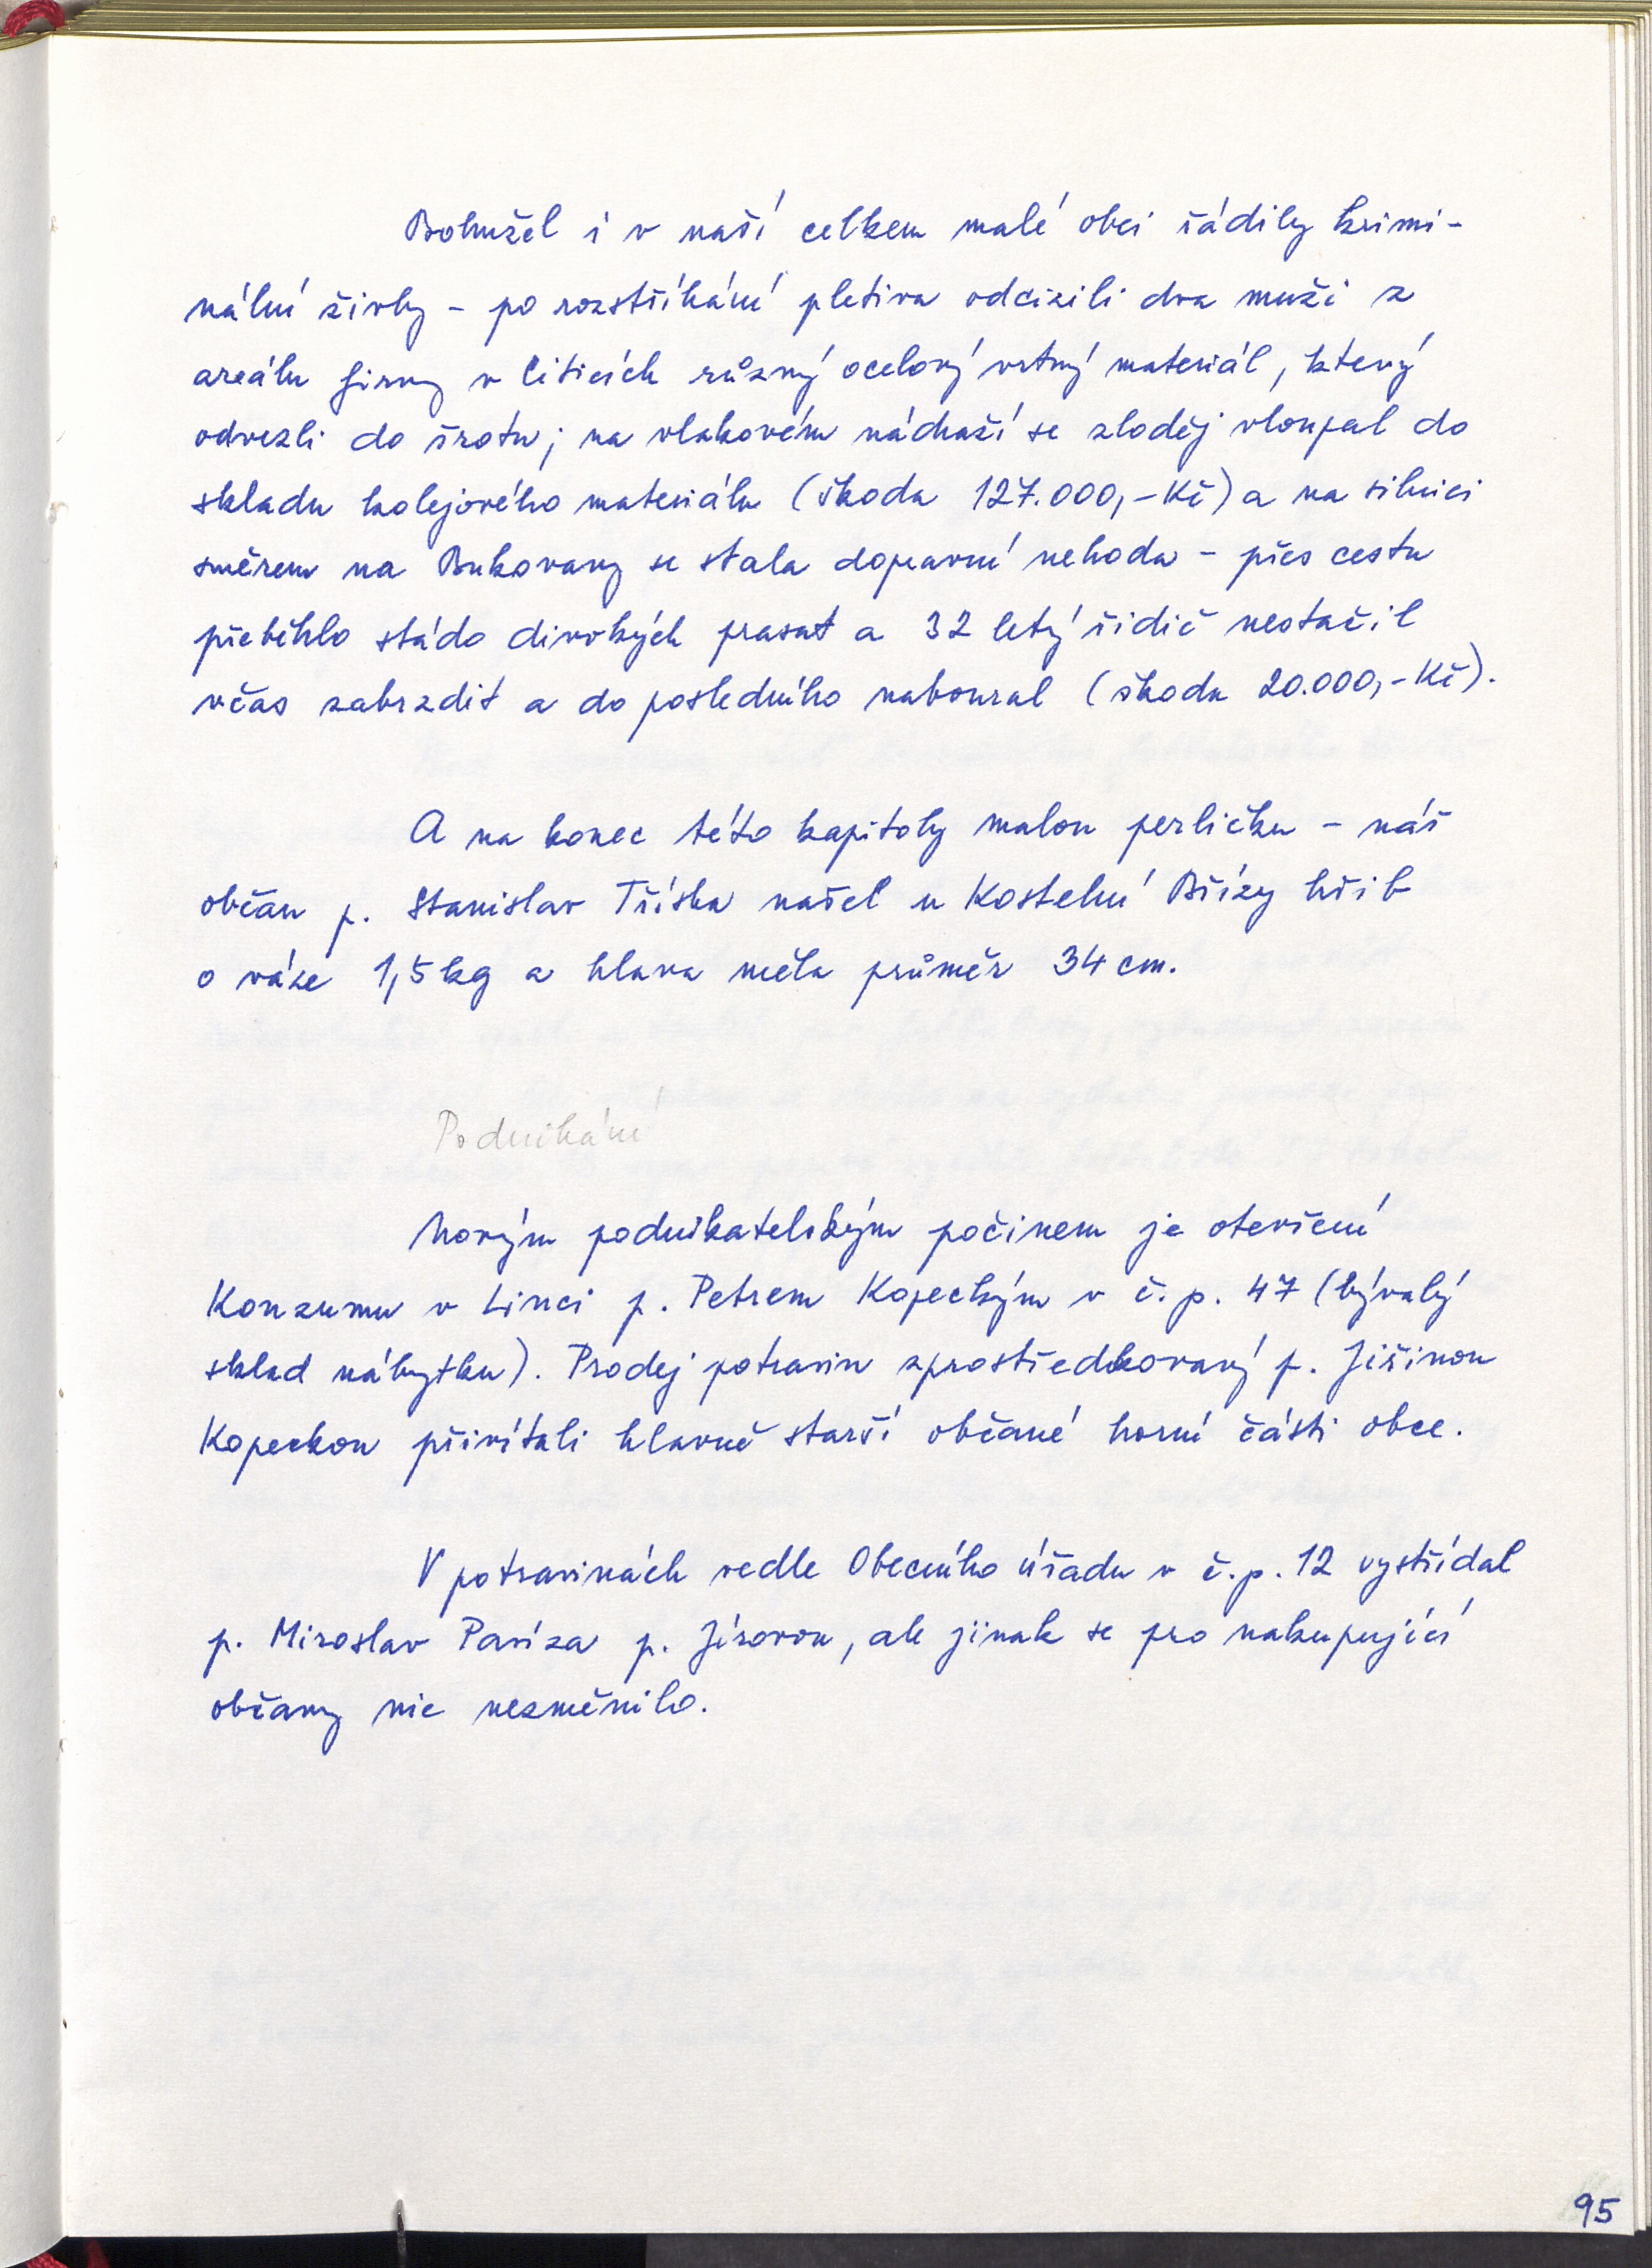 Bohužel i v naší celkem malé obci řádily krimi-
nální živly - po rozstříhání pletiva odcizili dva muži z
areálu firmy v Liticích různý ocelový vrtný materiál, který
odvezli do šrotu; na vlakovém nádraží se zloděj vloupal do
skladu kolejového materiálu (škoda 127.000,-Kč) a na silnici
směrem na Bukovany se stala dopravní nehoda - přes cestu
přeběhlo stádo divokých prasat a 32 letý řidič nestačil
včas zabrzdit a do posledního naboural (škoda 20.000,-Kč).
A na konec této kapitoly malou perličku - náš
občan p. Stanislav Tříska našel u Kostelní Břízy hřib
o váze 1,5 kg a hlava měla průměr 34 cm.
Podnikání
Novým podnikatelským počinem je otevření
Konzumu v Linci p. Petrem Kopeckým v č. p. 47 (bývalý
sklad nábytku). Prodej potravin zprostředkovaný p. Jiřinou
Kopeckou přivítali hlavně starší občané horní části obce.
V potravinách vedle Obecního úřadu v č. p. 12 vystřídal
p. Miroslav Paríza p. Jírovou, ale jinak se pro nakupující
občany nic nezměnilo.
95